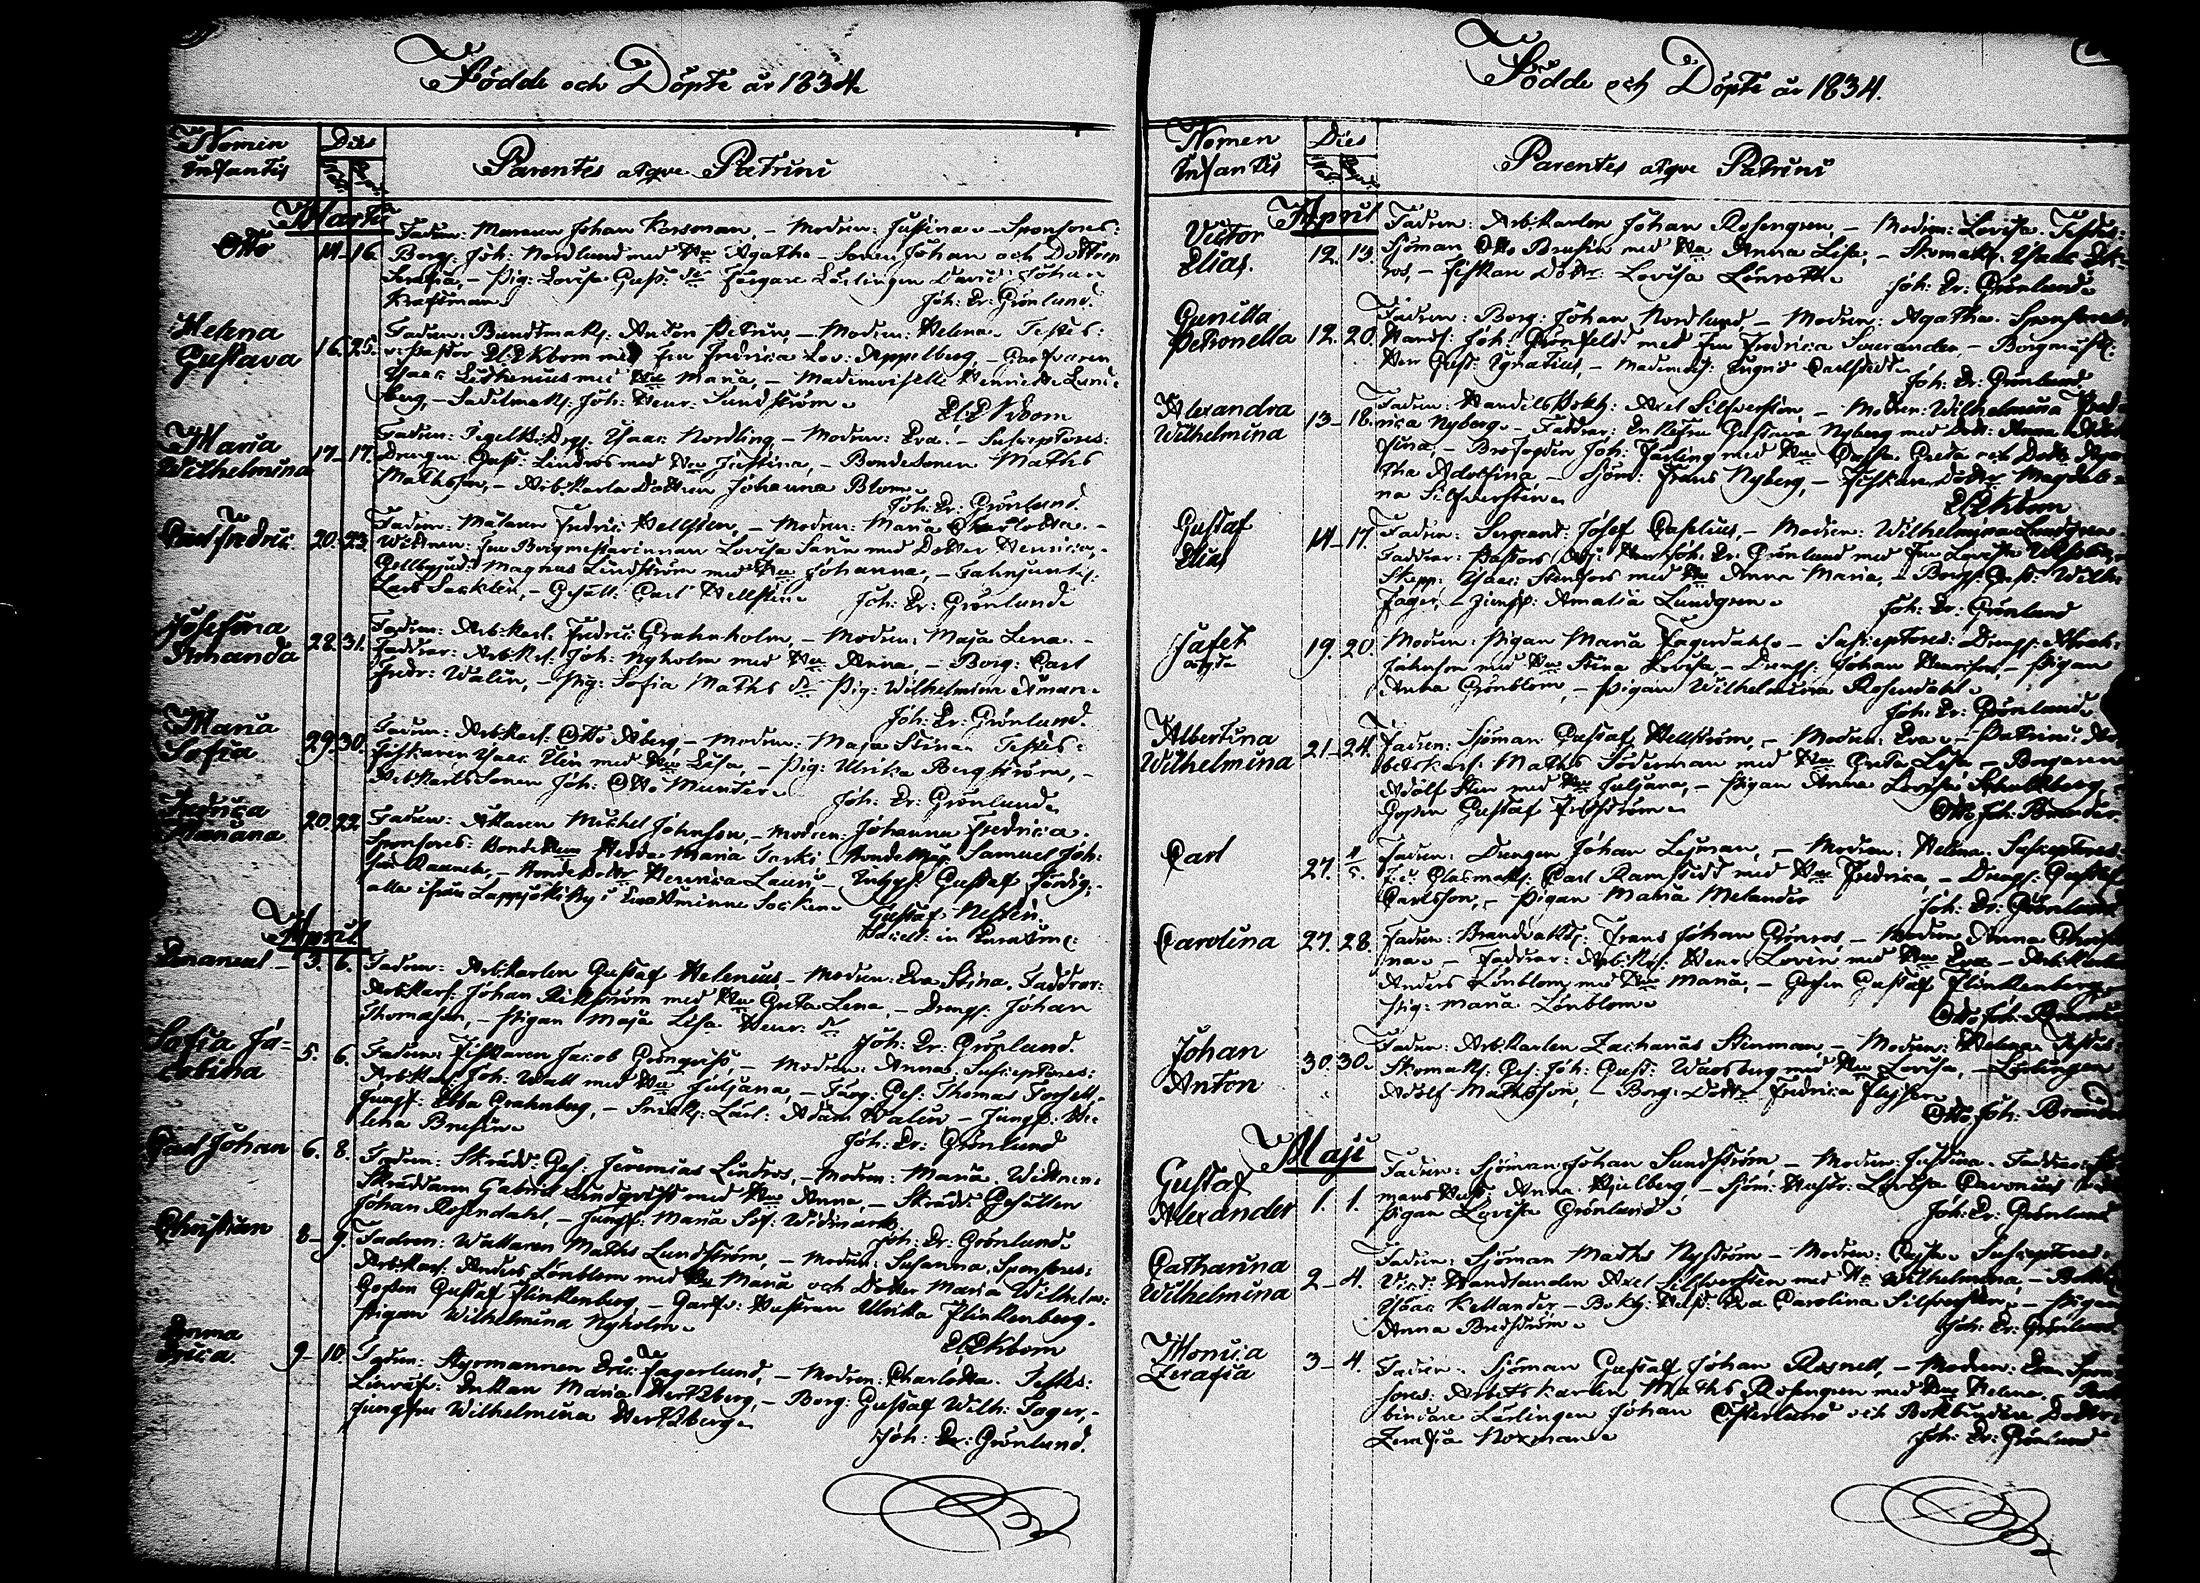 Födde och Döpte år 1834.
Nomen Infantis
Dies
Parentes atque Patrini
Martii
Otto 14-16. Fadren: Johan Korsman, - Modren: Justina - Sponsores:
Borg: Joh: Nordlund med Hu Agatha - Sonen Johan och Dottren
Serafia, - Pig: Lovisa Gust: dr Färgare Lärlingen David Johan
Kraftman.
Joh: Er: Grönlund.
Helena Gustava 16. 25. Fadren: Buntmak: Anton Petrin, - Modren: Helena. Testes:
v: Pastor El: Ekbom med Fru Fredrica Lov: Appelberg, - Garfvaren
Isaac Lithenius med Hu Maria, - Mademoiselle Henriette Lund-
berg, - Sadelmak: Joh: Henr: Sundström.
El: Ekbom
Maria Wilhelmina 17-17. Fadren: Isaac Nordling, - Modren: Eva. - Susceptores:
Drengen Gust: Lindros med Hu Justina, - Bondesonen Maths
Mathsson, - Arb:karls Dottren Johanna Blom.
Joh: Er: Grönlund.
Carl Fredric 20. 23. Fadren: Målaren Fredric Hellsten, - Modren: Maria Charlotta. -
Wittnen: Fru Borgmestarinnan Lovisa med Dotter Henrica, -
Magnus Lindström med Hu Johanna, -
Lars Sacklén, - Gesäll: Carl Hellsten.
Joh: Er: Grönlund
Josefina Amanda 28. 31. Fadren: Arb:karl: Fredric Grahnholm, - Modren: Maja Lena. -
Faddrar: Arb:kl: Joh: Nyholm med Hu Anna, - Borg: Carl
Fredr: Walin, - Pig: Sofia Maths dr Pig: Wilhelmina Åman.
Joh: Er: Grönlund.
Maria Sofia 29. 30. Fadren: Arb:karl: Otto Åberg, - Modren: Maja Stina. Testes:
Fiskaren Isaac med Hu Lisa, - Pig: Ulrika Bergström, -
Arb:karls Sonen Joh: Otto Munter.
Joh: Er: Grönlund.
Fredrica Mariana 20. 22. Fadren: Michel Johnsson, - Modren: Johanna Fredrica.
Sponsores: Hedda Maria Samuel Joh:
Henrica Gustaf
alla ifrån Lappjoki by i Euraåminne Socken.
Gustaf
in Euraåm:
April
Emanuel - 3. 6. Fadren: Arb:karlen Gustaf Helenius, - Modren: Eva Stina. Faddrar:
Arb:karl: Johan Rikström med Hu Greta Lena, - Dreng: Johan
Thomasson, - Pigan Maja Lisa Henr: dr
Joh: Er: Grönlund.
Sofia Jacobina 5. 6. Fadren: Fiskaren Jacob Grönqvist, - Modren: Anna. Susceptores:
Arb:karl: Joh: Wall med Hu Juljana, - Färg: Ges: Thomas Forsell, -
Jungf: Ebba Grahnberg, - Snick: Lärl: Adam Walin - Jungf: He-
lena Brusin.
Joh: Er: Grönlund
Carl Johan 6. 8. Fadren: Skrädd: Ges: Jeremias Lindros, - Modren: Maria. Wittnen:
Skräddaren Gabriel Lindqvist med Hu Anna, - Skrädd: Gesällen
Johan Rosendahl, - Jungf: Maria Sof: Widmark.
Joh: Er: Grönlund.
Christian 8 - 9. Fadren: Wallaren Maths Lundström, - Modren: Susanna. Sponsores:
Arb:karl: Anders Lönblom med Hu Maria och Dotter Maria Wilhelm:
Gossen Gustaf Flinkenberg, - Garfv: Hustrun Ulrika Flinkenberg.
Pigan Wilhelmina Nyholm.
El: Ekbom
Emma Erica. 9 - 10. Fadren: Styrmannen Eric Fagerlund, - Modren: Charlotta. Testes:
Enkan Maria Hertzberg, - Borg: Gustaf Wilh: Fager, -
Jungfru Wilhelmina Hertzberg.
Joh: Er: Grönlund.
Födde och Döpte år 1834.
Nomen Infantis
Dies
Parentes atque Patrini
April
Victor Elias. 12. 13. Fadren: Arb:karlen Johan Rosengren, - Modren: Lovisa. Testes:
Sjöman Otto Brusin med Hu Anna Lisa, - Skomak: Isaac
- Fiskar Dottr: Lovisa Lönroth.
Joh: Er: Grönlund.
Gunilla Petronella 12. 20. Fadren: Borg: Johan Nordlund - Modren: Agatha. Sponsores:
Hand: Joh: Grönfeld med Fru Fredrica - Borgmäst:
Herr Gust: Ignatius, - Mademois: Ingrid Carlstedt.
Joh: Er: Grönlund.
Alexandra Wilhelmina 13 - 18. Fadren: Handelsbokh: Axel Silfversten, - Modren: Wilhelmina Fred-
rica Nyberg. - Faddrar: Enkefru Gustava Nyberg med Dott: Anna
Joh: Färling med Hu Greta och Dottr Aga-
tha Adolfina, - Sjöm: Frans Nyberg, - Fiskare Dottr Magdale-
na Silfversten.
El: Ekbom
Gustaf Elias 14 - 17. Fadren: Sergeant: Josef Caselius, - Modren: Wilhelmina Lundgren
Faddrar: Pastors Adj: Herr Joh: Er: Grönlund med Fru Lovisa
Skepp: Isaac med Hu Anna Maria, - Borg: Gust: Wilh:
Fager, - Jungf: Amalia Lundgren.
Joh: Er: Grönlund
Jafet 19. 20. Modren: Pigan Maria Fagerdahl. - Susceptores: Dreng: Abrah:
Johnsson med Hu Stina Lovisa - Dreng: Johan Henricsson, - Pigan
Anna Grönblom, - Pigan Wilhelmina Rosendahl.
Joh: Er: Grönlund.
Albertina Wilhelmina 21 - 24. Fadren: Sjöman Gustaf Hellström, - Modren: Eva. - Patrini: Ar-
betskarl: Maths Söderman med Hu Greta Lisa - Borgaren
Adolf Sten med Hu Juljana, - Pigan Anna Lovisa
Gossen Gustaf
Otto Joh: Brander.
Carl 27. 4/5. Fadren: Drengen Johan Lejman, - Modren: Helena. Susceptores:
Glasmak: Carl Ramstedt med Hu Fredrica, - Dreng: Gustaf
Carlsson, - Pigan Maria Melander
Joh: Er: Grönlund
Carolina 27. 28. Fadren: Brandvakts: Frans Johan Grönros, - Modren Anna Christi-
na. - Faddrar: Arb:kl: Henr: Lovén med Hu Eva - Arb:karlen
Anders Lönblom med Hu Maria, - Gossen Gustaf Flinkenberg,
Pig: Maria Lönblom.
Otto Joh: Brander
Johan Anton 30. 30. Fadren: Arb:karlen Zacharias Stenman, - Modren: Helena. Testes:
Skomak: Ges: Joh: Gust: Warsberg med Hu Lovisa, - Lärlingen
Adolf Mathsson, - Borg: Dottr Fredrica
Otto Joh: Brander
Maji
Gustaf Alexander 1. 1. Fadren: Sjöman Johan Sundström, - Modren: Justina. Faddrar:
mans Hust: Anna Hjulberg, - Sjöm: Hustr: Lovisa Cavonius
Pigan Lovisa Grönlund.
Joh: Er: Grönlund
Catharina Wilhelmina 2 - 4. Fadren: Sjöman Maths Nyström - Modren: Cajsa. Susceptores:
Handlanden Axel Silfversten med Hu Wilhelmina, - Bokh:
Isaac Kellander - Bokh: Eva Carolina Silfversten, - Pigan
Anna Bredström.
Joh: Er: Grönlund
Monica Zerafia 3 - 4. Fadren: Sjöman Gustaf Johan Rosnell, - Modren: Eva. Spon-
sores: Arbetskarlen Maths Rosengren med Hu Helena. - Bok-
bindare Lärlingen Johan Österlund och Bokbindare Dottr:
Zerafia Norrman.
Joh: Er: Grönlund